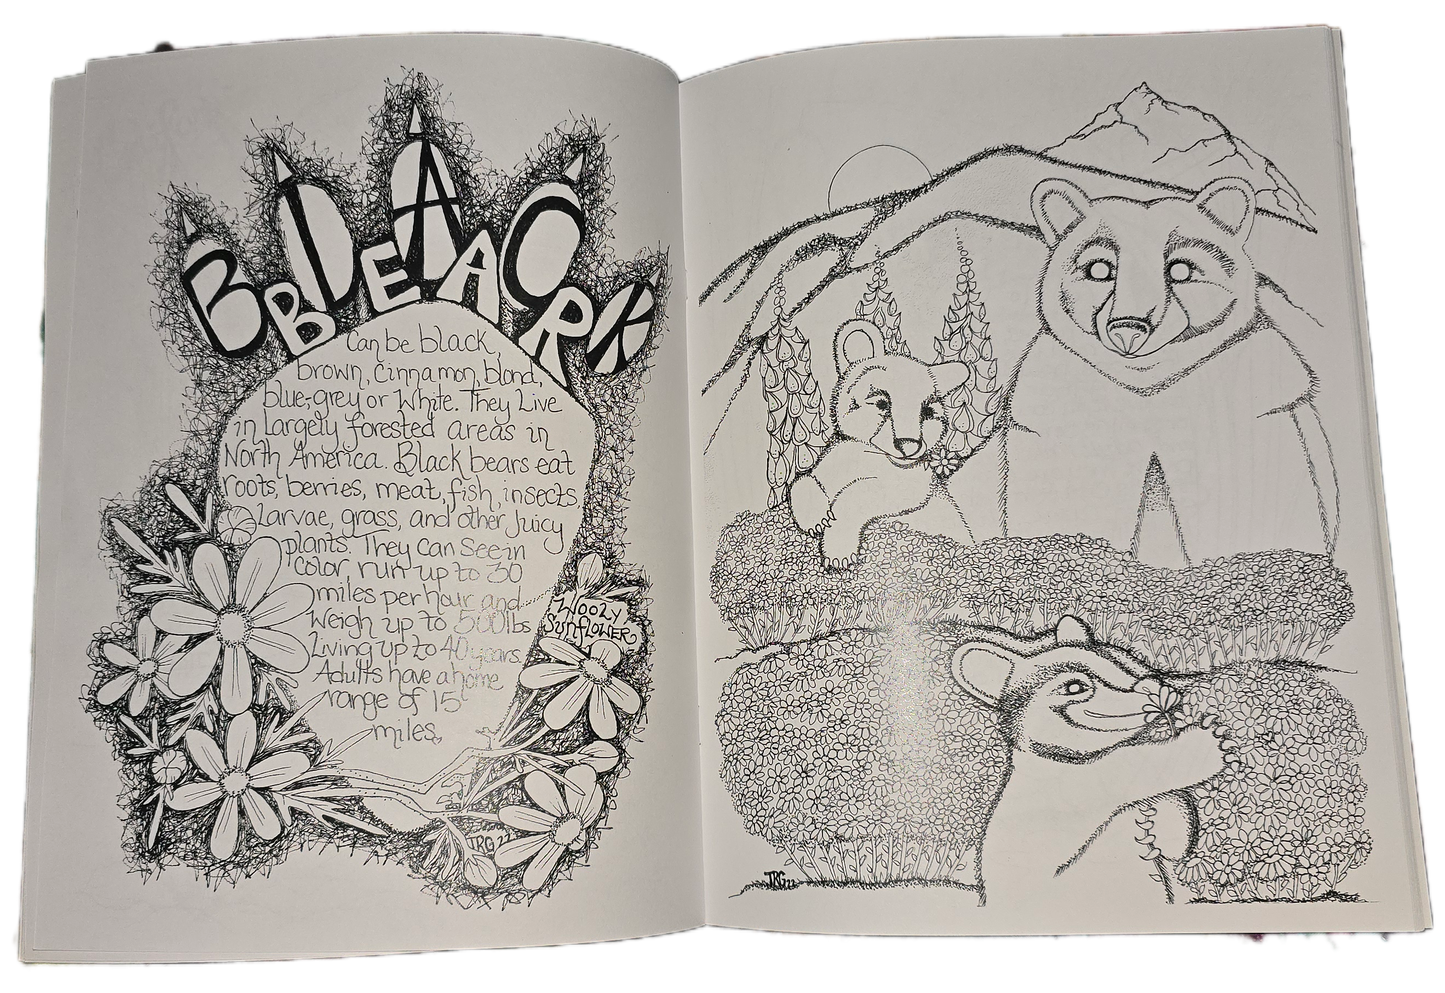 BLACK
BEAR
Can be black,
brown, cinnamon, blond,
blue-grey or White. They Live
in largely forested areas in
North America. Black bears eat
roots, berries, meat, fish, insects,
Larvae, grass, and other Juicy
plants. They can see in
color run up to 30
miles per hour and
Weigh up to 500 lbs
Living up to 40 years.
Adults have a home
range of 15
miles.
Woozy
Sunflower
JRG
JRG 22